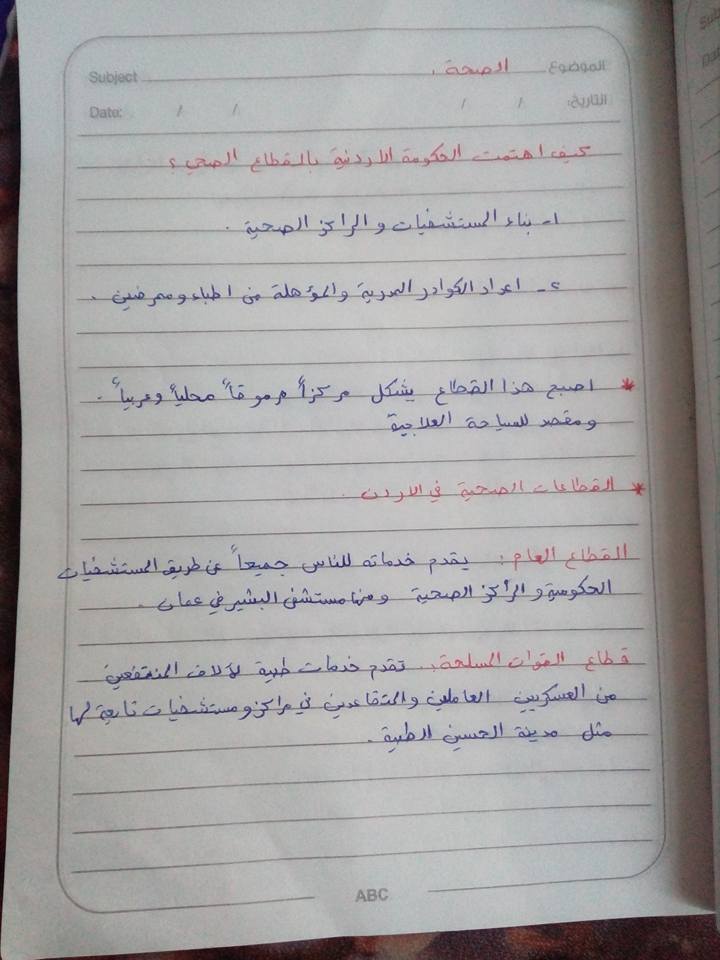 Subject الصحة. الموضوع
Date: / / / / التاريخ:
كيف اهتمت الحكومة الاردنية بالقطاع الصحي؟
١- بناء المستشفيات و الراكز الصحية .
٢- اعداد الكوادر المدربة والمؤهلة من اطباء وممرضين .
* اصبح هذا القطاع يشكل مركزاً مرموقاً محلياً وعربياً .
ومقصد للسياحة العلاجية
* القطاعات الصحية في الاردن .
القطاع العام : يقدم خدماته للناس جميعاً عن طريق المستشفيات
الحكومية و الراكز الصحية ومنها مستشفى البشير في عمان .
قطاع القوات المسلحة : تقدم خدمات طبية لآلاف المنتفعين
من العسكريين العاملين والمتقاعدين في مراكز ومستشفيات تابعة لها
مثل مدينة الحسين الطبية .
ABC